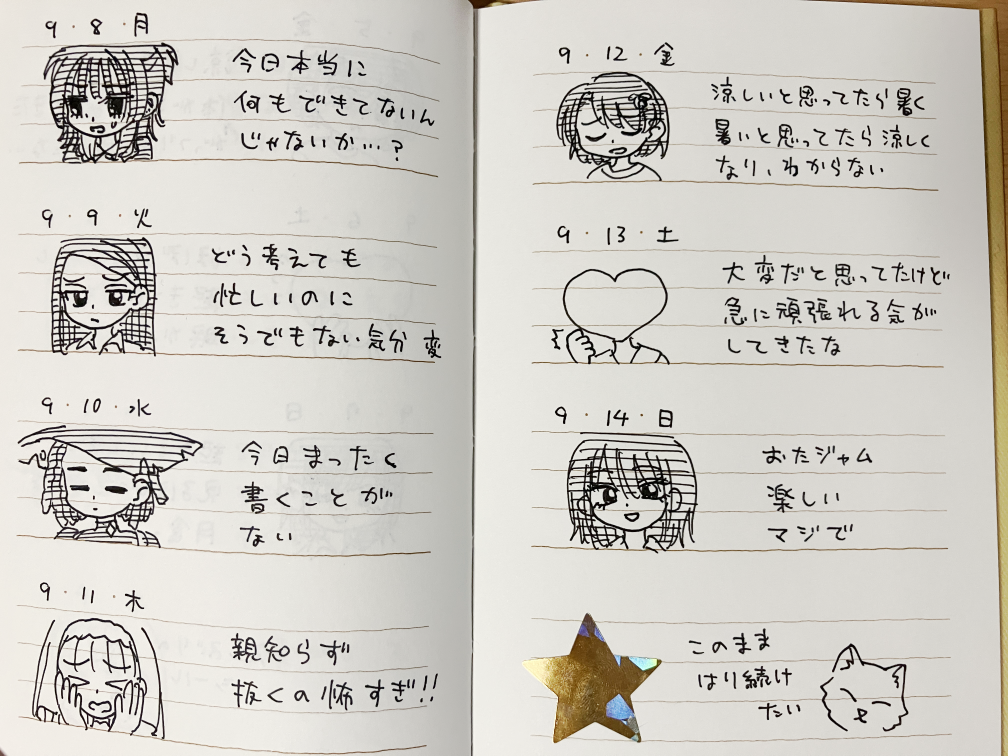 9・8・月
今日本当に
何もできてないん
じゃないか…?
9・9・火
どう考えても
忙しいのに
そうでもない気分 変
9・10・水
今日まったく
書くことが
ない
9・11・木
親知らず
抜くの怖すぎ!!
9・12・金
涼しいと思ってたら暑く
暑いと思ってたら涼しく
なり、わからない
9・13・土
大変だと思ってたけど
急に頑張れる気が
してきたな
9・14・日
おたジャム
楽しい
マジで
このまま
はり続け
たい